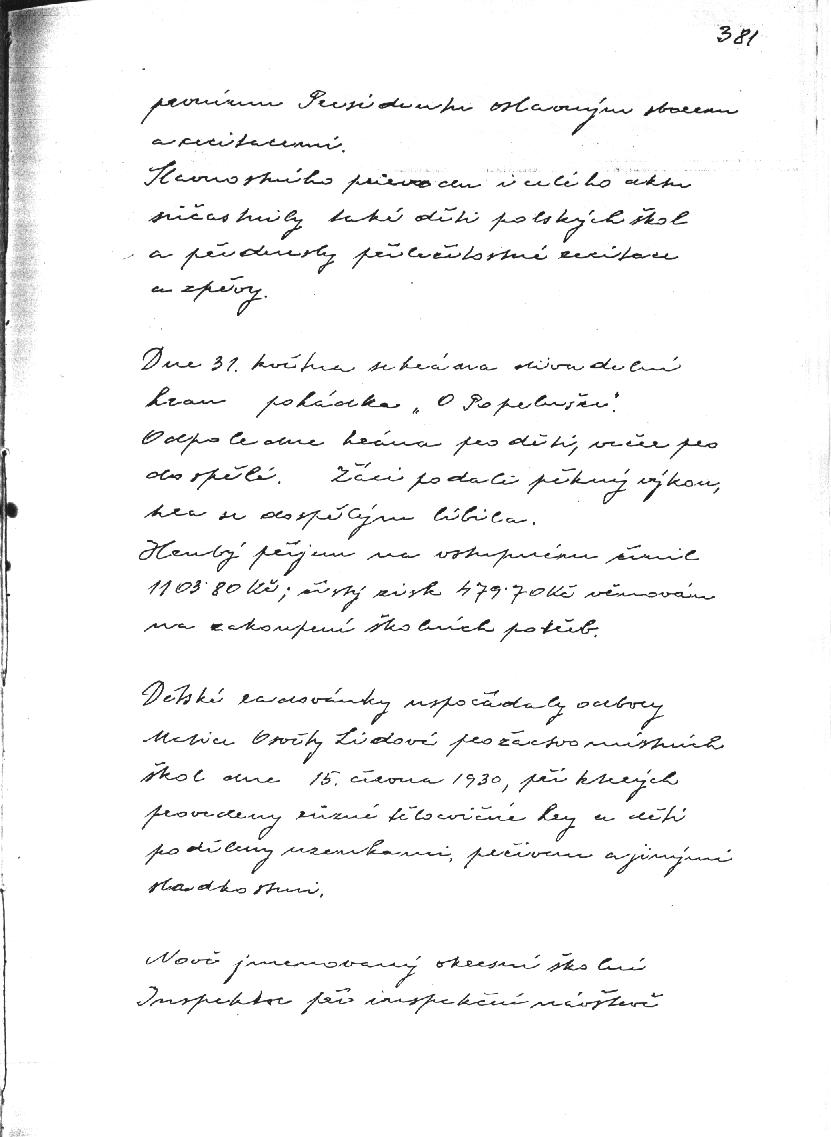 381
prvnímu Presidentu oslavným sborem
a recitacemi.
Slavnostního průvodu i celého aktu
súčastnily také děti polských škol
a přednesly příležitostné recitace
a zpěvy.
Dne 31. května sehrána divadelní
hrou pohádka „O Popelušce".
Odpoledne hrána pro děti, večer pro
dospělé. Žáci podali pěkný výkon,
hra se dospělým líbila.
Hrubý příjem na vstupném činil
1103·80 Kč; čistý zisk 479·70 Kč věnován
na zakoupení školních potřeb.
Dětské radovánky uspořádaly odbory
Matice Osvěty Lidové pro žactvo místních
škol dne 15. června 1930, při kterých
provedeny různé tělocvičné hry a děti
poděleny uzenkami, pečivem a jinými
sladkostmi.
Nově jmenovaný okresní školní
Inspektor při inspekční návštěvě